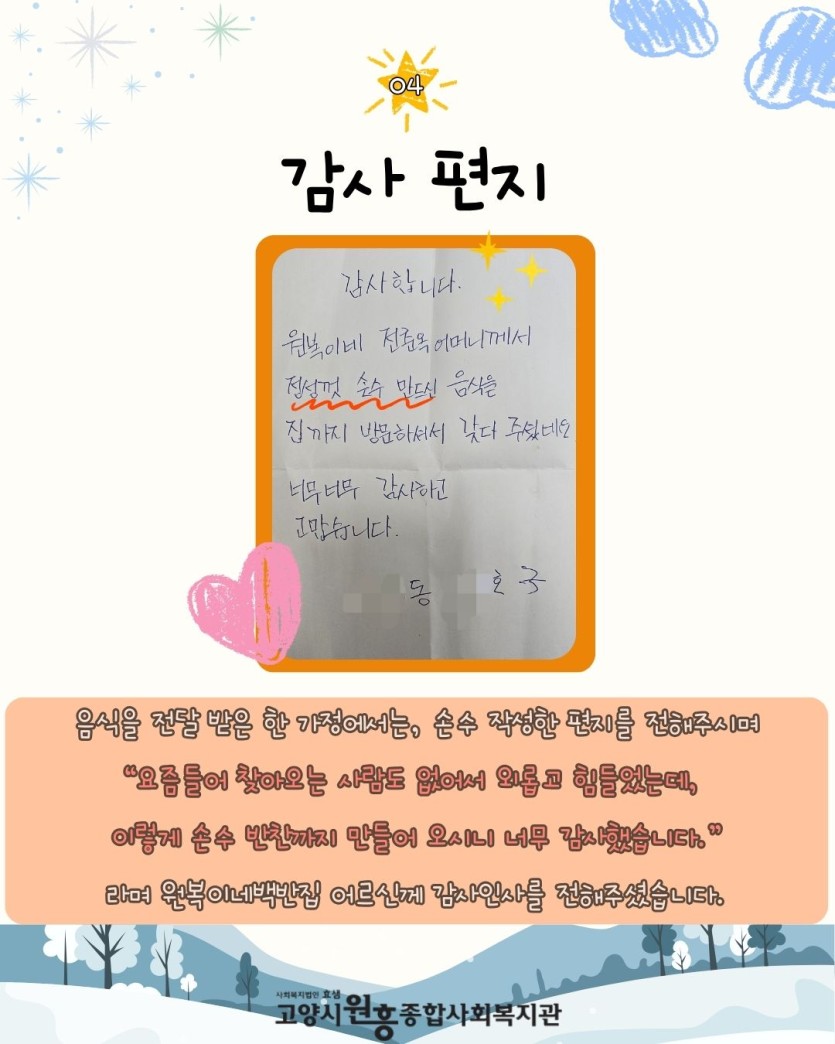 04
감사 편지
감사합니다.
원복이네 전춘옥어머니께서
정성껏 손수 만드신 음식을
집까지 방문하셔서 갖다 주셨네요
너무너무 감사하고
고맙습니다.
동 호 국
음식을 전달 받은 한 가정에서는, 손수 작성한 편지를 전해주시며
“요즘들어 찾아오는 사람도 없어서 외롭고 힘들었는데,
이렇게 손수 반찬까지 만들어 오시니 너무 감사했습니다.”
라며 원복이네백반집 어르신께 감사인사를 전해주셨습니다.
사회복지법인 효샘
고양시원흥종합사회복지관